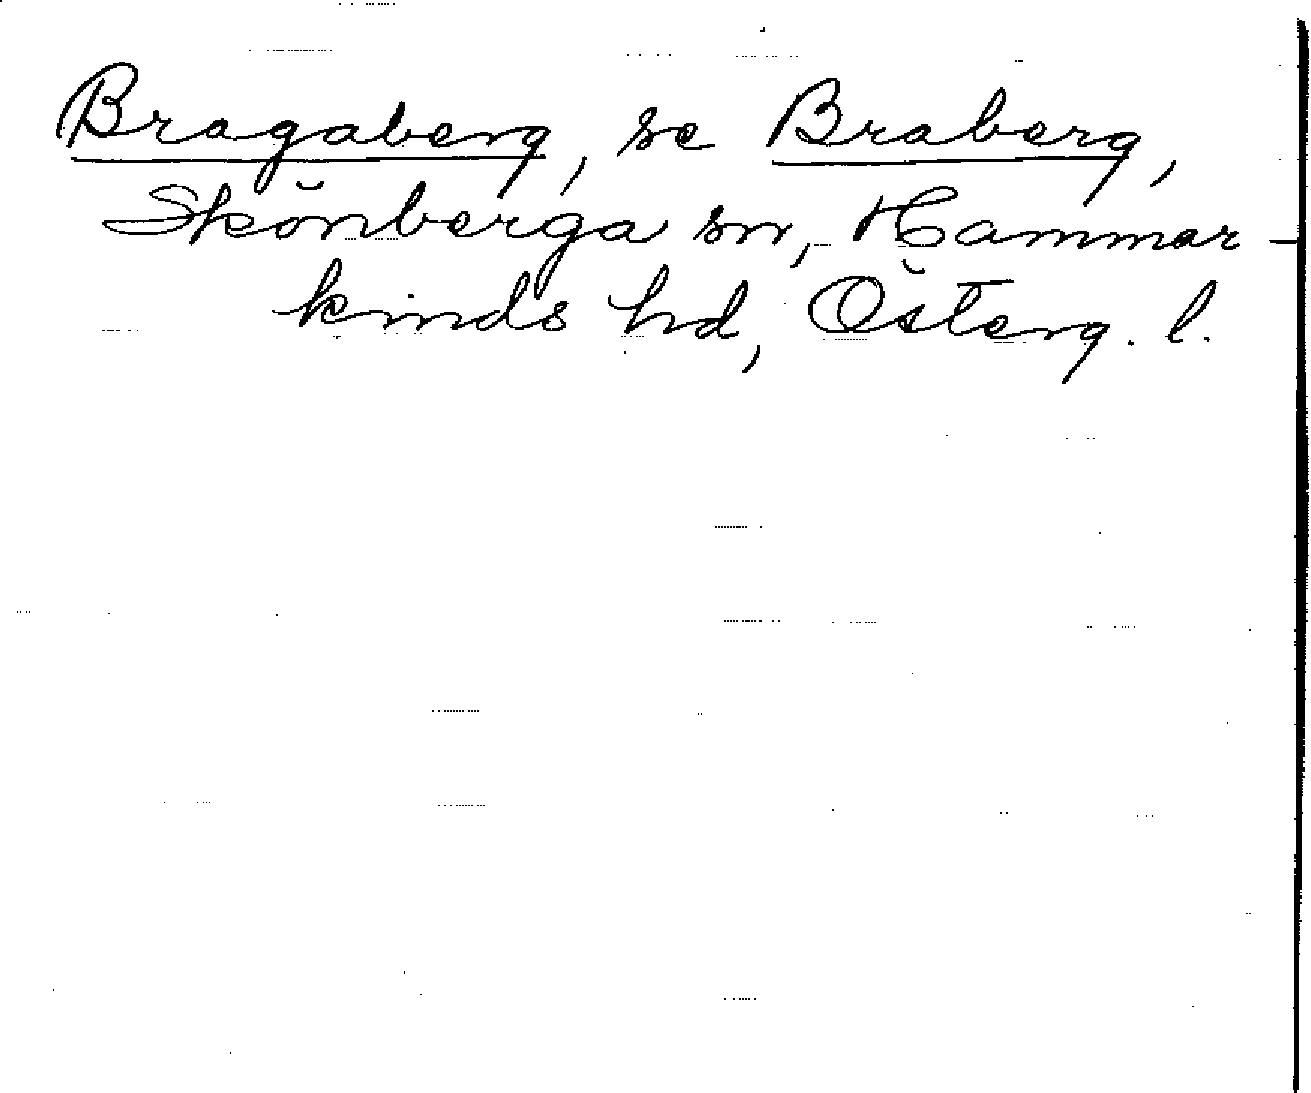 Bragaberg, se Braberg,
Skönberga sn, Hammar-
kinds hd, Österg. l.